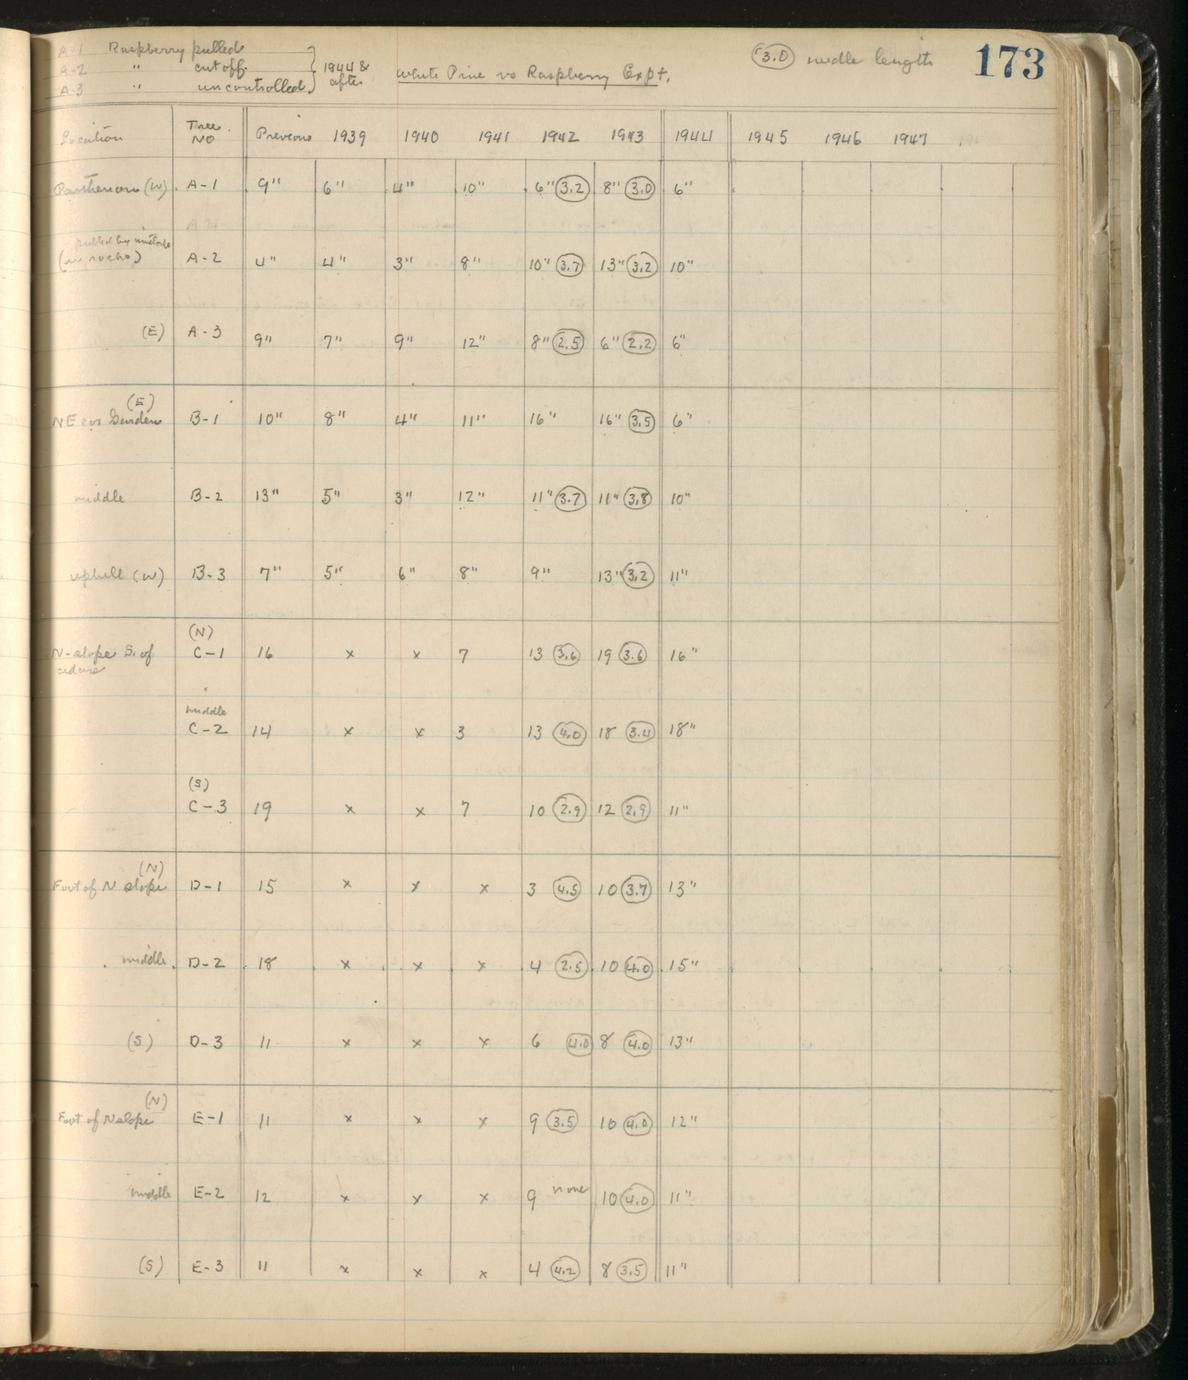 A-1 Raspberry pulled
A-2 " cut off
A-3 " uncontrolled
1944 & after
White Pine vs Raspberry Expt.
3.0 needle length
173
Location Tree No Previous 1939 1940 1941 1942 1943 1944 1945 1946 1947
Parthenon (W) A-1 9" 6" 4" 10" 6" 3.2 8" 3.0 6"
pulled by mistake
A-2 4" 4" 3" 8" 10" 3.7 13" 3.2 10"
(E) A-3 9" 7" 9" 12" 8" 2.5 6" 2.2 6"
(E)
NE cor Garden B-1 10" 8" 4" 11" 16" 16" 3.5 6"
middle B-2 13" 5" 3" 12" 11" 3.7 11" 3.8 10"
uphill (W) B-3 7" 5" 6" 8" 9" 13" 3.2 11"
(N)
N-slope S. of C-1 16 x x 7 13 3.6 19 3.6 16"
cedars
middle
C-2 14 x x 3 13 4.0 18 3.4 18"
(S)
C-3 19 x x 7 10 2.9 12 2.9 11"
(N)
Foot of N slope D-1 15 x x x 3 4.5 10 3.7 13"
middle D-2 18 x x x 4 2.5 10 4.0 15"
(S) D-3 11 x x x 6 4.0 8 4.0 13"
(N)
Foot of N slope E-1 11 x x x 9 3.5 10 4.0 12"
middle E-2 12 x x x 9 none 10 4.0 11"
(S) E-3 11 x x x 4 4.2 8 3.5 11"